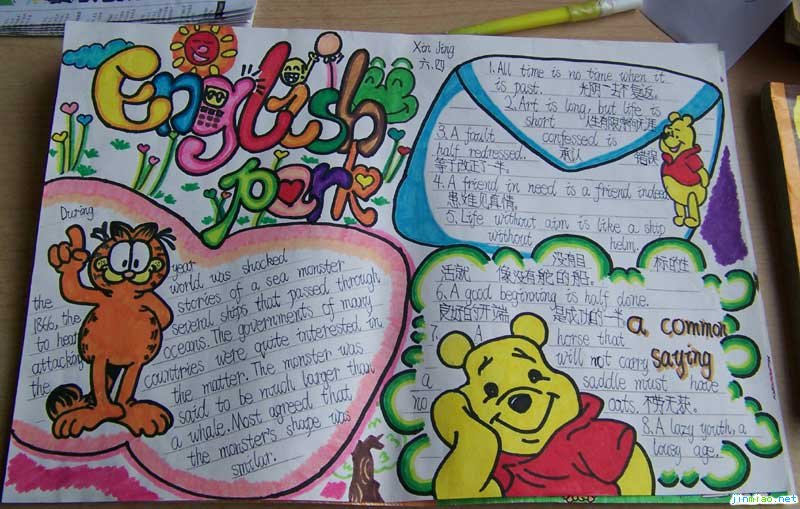 English
park
Xin Jing
六.四
During
the year
1866, the world was shocked
to hear stories of a sea monster
attacking several ships that passed through
the oceans. The governments of many
countries were quite interested in
the matter. The monster was
said to be much larger than
a whale. Most agreed that
the monster's shape was
similar.
1. All time is no time when it
is past. 光阴一去不复返。
2. Art is long, but life is
short 人生有限学问无涯
3. A fault confessed is
half redressed. 承认 错误
等于改正了一半。
4. A friend in need is a friend indeed
患难见真情。
5. Life without aim is like a ship
without helm.
没有目 标的生
活就 像没有舵的船。
6. A good beginning is half done.
良好的开端 是成功的一半
a common
saying
7. A horse that
will not carry
a saddle must have
no oats. 不劳无获。
8. A lazy youth, a
lousy age.
jinmiao.net